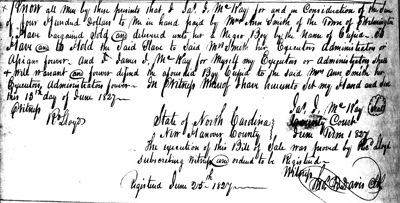 Know all men by these presents that I Jas. I. McKay for and in Consideration of the Sum
of four Hundred Dollars to me in hand paid by Mrs. Ann Smith of the Town of Wilmington
I Have bargained Sold and delivered unto her a Negro Boy by the Name of Cupid. To
Have and to Hold the Said Slave to Said Mrs. Smith her Executors Administrators or
Assigns forever. And I James I. McKay for Myself my Executors or Administrators Shall
& will warrant and forever defend the aforesaid Boy Cupid to the Said Mrs. Ann Smith her
Executors, Administrators forever. In Witness Whereof I have hereunto Set my Hand and
this 13th day of June 1827.
Witness
Jas. I. McKay Seal
R. Lloyd
State of North Carolina
County Court
New Hanover County
June Term 1827
The execution of this Bill of Sale was proved by R. Lloyd
Subscribing witness and ordered to be Registered.
Witness
Registered June 25th 1827.
Davis Clk